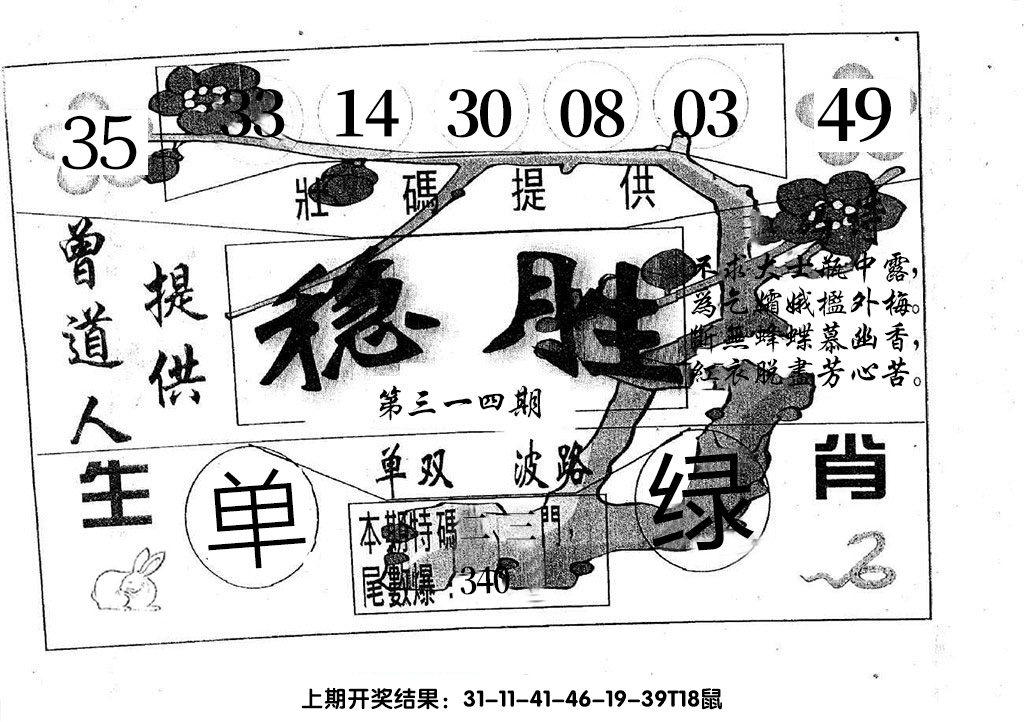 35 33 14 30 08 03 49
壯碼提供
曾道人
提供
稳胜
第三一四期
不求大士瓶中露，
為乞孀娥檻外梅。
斷無蜂蝶慕幽香，
紅衣脫盡芳心苦。
单双 波路
生肖
单
绿
本期特碼二、三門，
尾數爆：340
上期开奖结果：31-11-41-46-19-39T18鼠